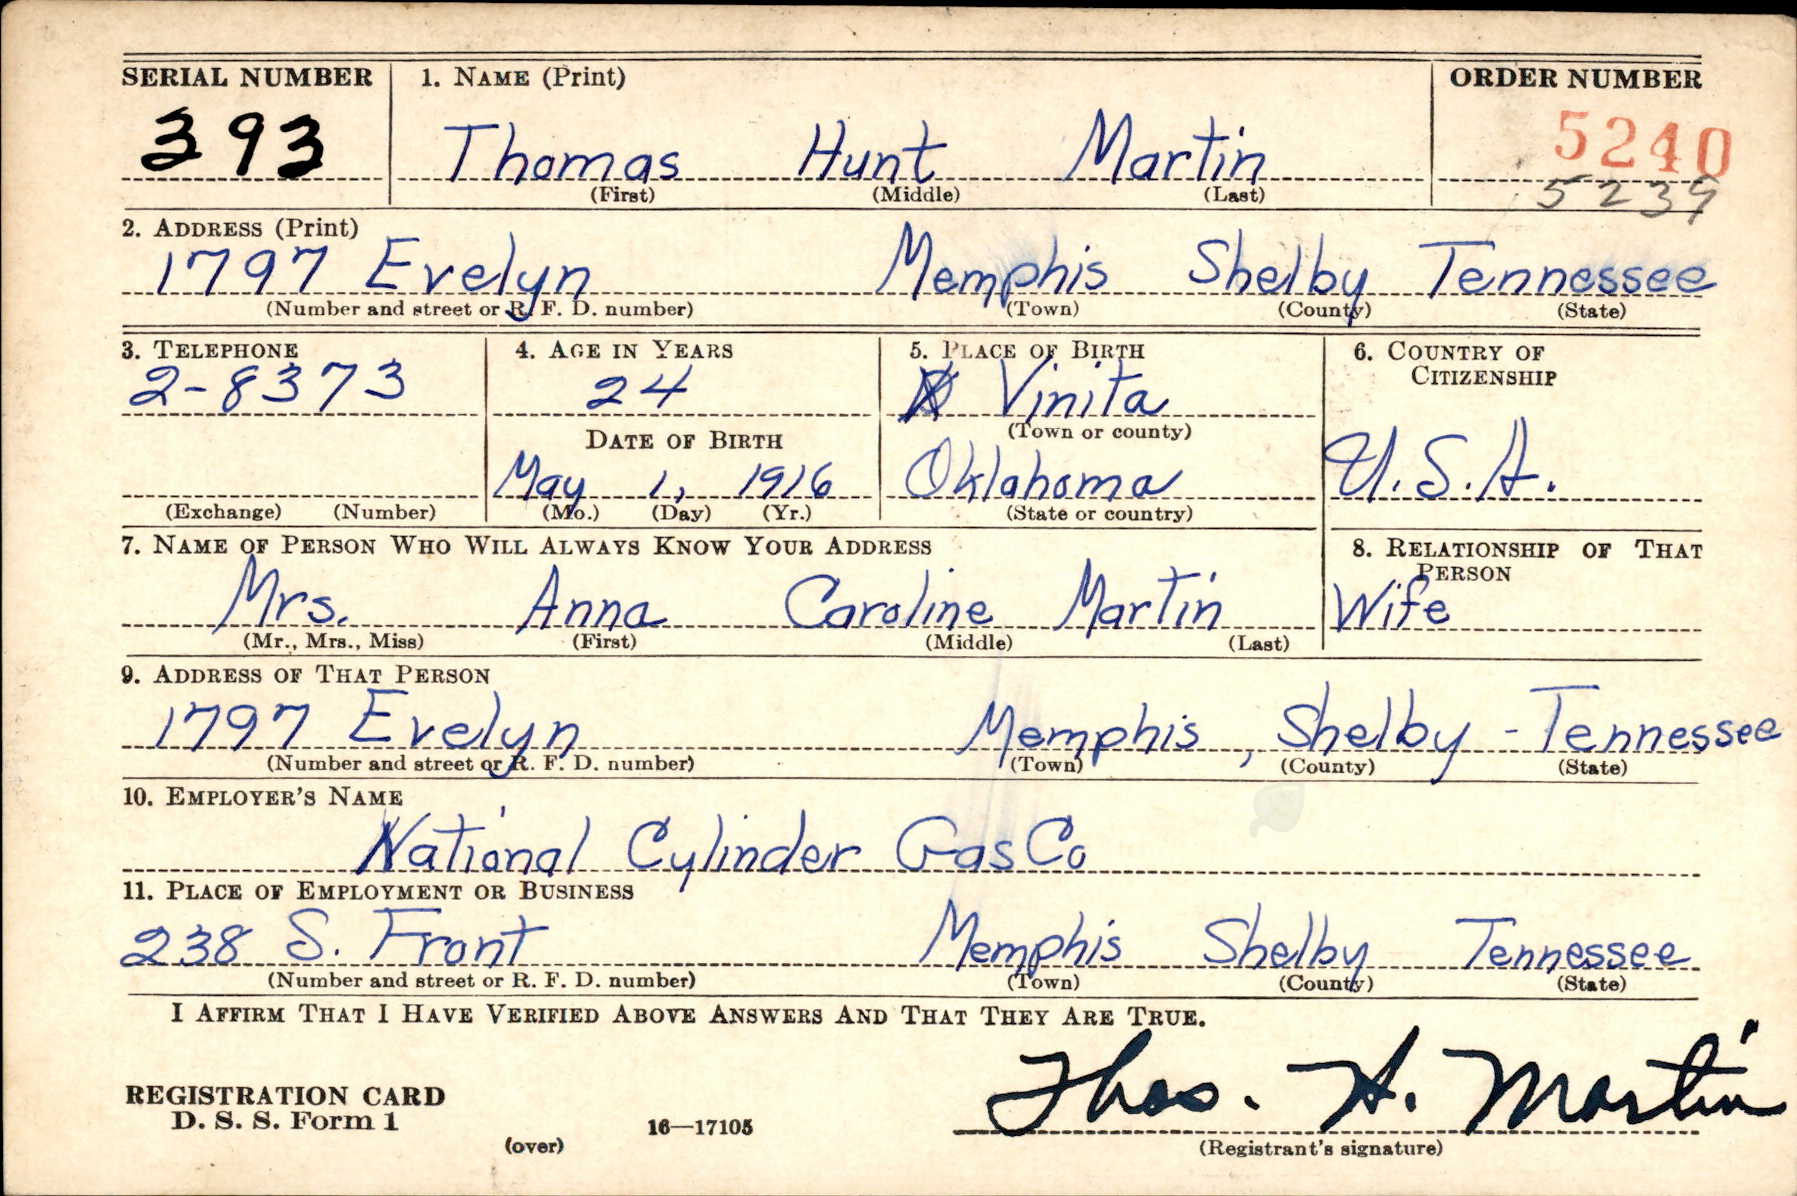 SERIAL NUMBER 1. NAME (Print) ORDER NUMBER
393 Thomas Hunt Martin 5240
(First) (Middle) (Last) 5239
2. ADDRESS (Print)
1797 Evelyn Memphis Shelby Tennessee
(Number and street or R. F. D. number) (Town) (County) (State)
3. TELEPHONE 4. AGE IN YEARS 5. PLACE OF BIRTH 6. COUNTRY OF
CITIZENSHIP
2-8373 24 Vinita
DATE OF BIRTH (Town or county)
May 1, 1916 Oklahoma U.S.A.
(Exchange) (Number) (Mo.) (Day) (Yr.) (State or country)
7. NAME OF PERSON WHO WILL ALWAYS KNOW YOUR ADDRESS 8. RELATIONSHIP OF THAT
PERSON
Mrs. Anna Caroline Martin Wife
(Mr., Mrs., Miss) (First) (Middle) (Last)
9. ADDRESS OF THAT PERSON
1797 Evelyn Memphis, Shelby - Tennessee
(Number and street or R. F. D. number) (Town) (County) (State)
10. EMPLOYER'S NAME
National Cylinder Gas Co
11. PLACE OF EMPLOYMENT OR BUSINESS
238 S. Front Memphis Shelby Tennessee
(Number and street or R. F. D. number) (Town) (County) (State)
I AFFIRM THAT I HAVE VERIFIED ABOVE ANSWERS AND THAT THEY ARE TRUE.
Thos. H. Martin
REGISTRATION CARD
D. S. S. Form 1 16—17105
(over) (Registrant's signature)